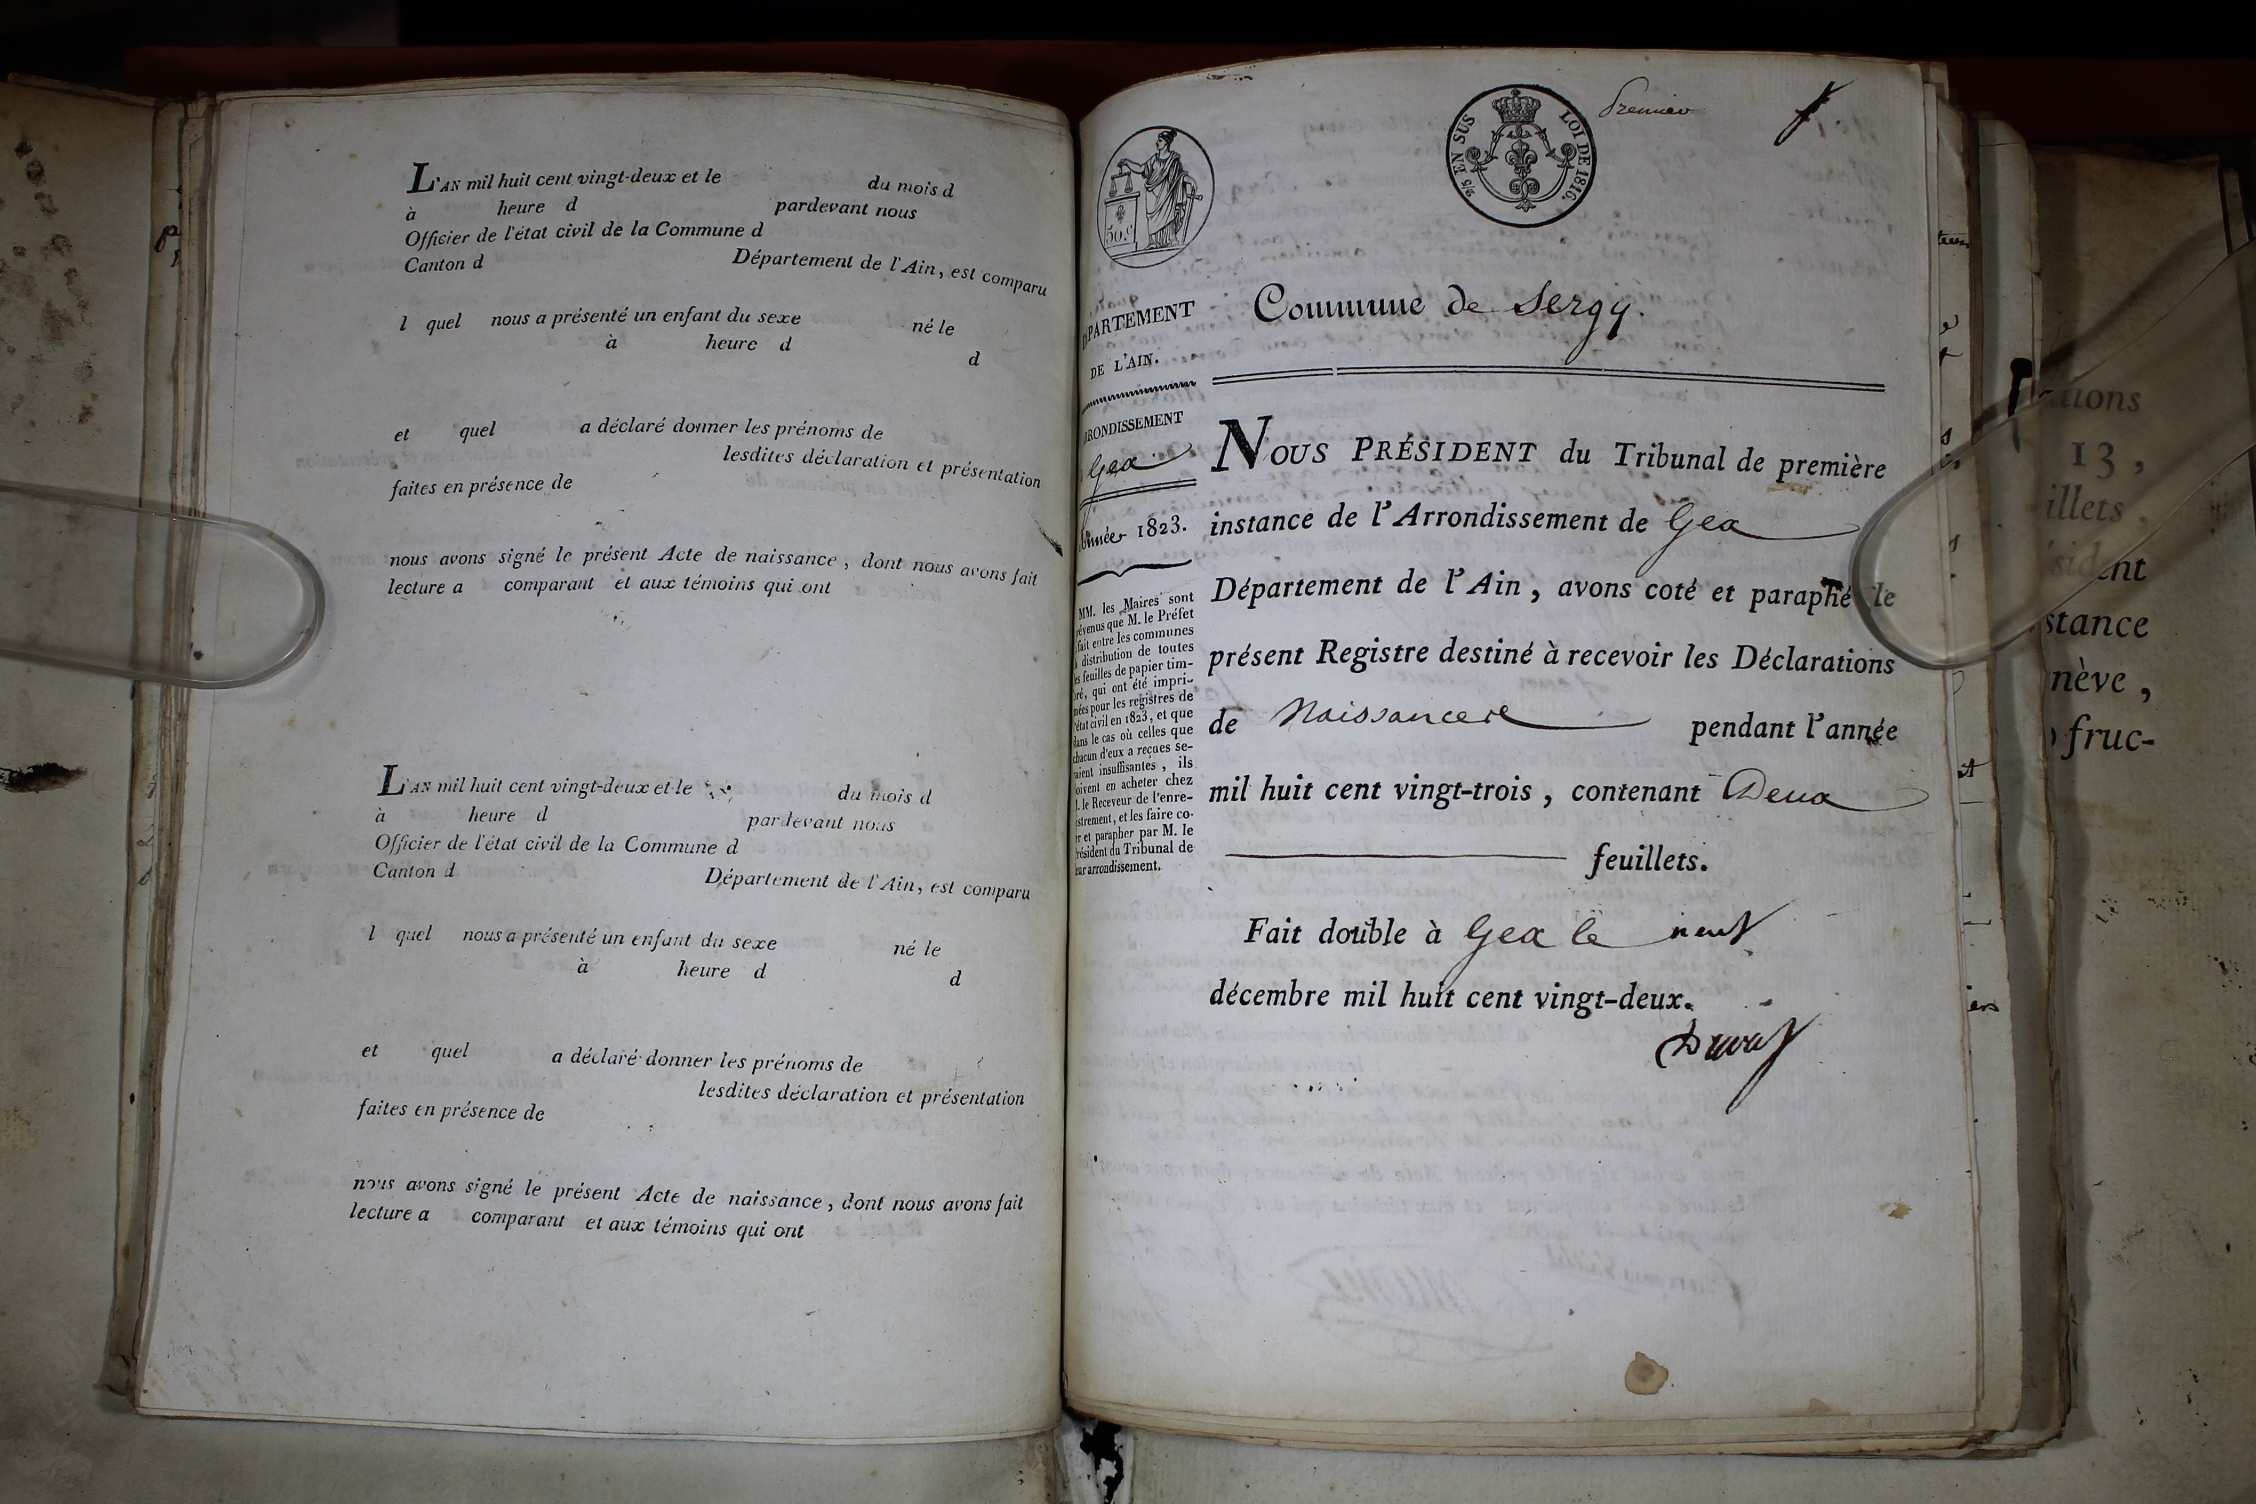 L'AN mil huit cent vingt-deux et le du mois d
à heure d pardevant nous
Officier de l'état civil de la Commune d
Canton d Département de l'Ain, est comparu
l quel nous a présenté un enfant du sexe né le
à heure d d
et quel a déclaré donner les prénoms de
lesdites déclaration et présentation
faites en présence de
nous avons signé le présent Acte de naissance, dont nous avons fait
lecture a comparant et aux témoins qui ont
L'AN mil huit cent vingt-deux et le du mois d
à heure d pardevant nous
Officier de l'état civil de la Commune d
Canton d Département de l'Ain, est comparu
l quel nous a présenté un enfant du sexe né le
à heure d d
et quel a déclaré donner les prénoms de
lesdites déclaration et présentation
faites en présence de
nous avons signé le présent Acte de naissance, dont nous avons fait
lecture a comparant et aux témoins qui ont
50.c
2/5 EN SUS LOI DE 1816.
Premier
PARTEMENT
DE L'AIN.
RONDISSEMENT
Gex
Année 1823.
MM. les Maires sont
évenus que M. le Préfet
fait entre les communes
distribution de toutes
es feuilles de papier tim-
bré, qui ont été impri-
mées pour les registres de
l'état civil en 1823, et que
dans le cas où celles que
chacun d'eux a reçues se-
raient insuffisantes, ils
oivent en acheter chez
. le Receveur de l'enre-
istrement, et les faire co-
er et parapher par M. le
résident du Tribunal de
eur arrondissement.
Commune de Sergy.
NOUS PRÉSIDENT du Tribunal de première
instance de l'Arrondissement de Gex
Département de l'Ain, avons coté et paraphé le
présent Registre destiné à recevoir les Déclarations
de Naissance pendant l'année
mil huit cent vingt-trois, contenant Deux
feuillets.
Fait double à Gex le neuf
décembre mil huit cent vingt-deux.
ations
13,
illets,
sident
stance
nève,
fruc-